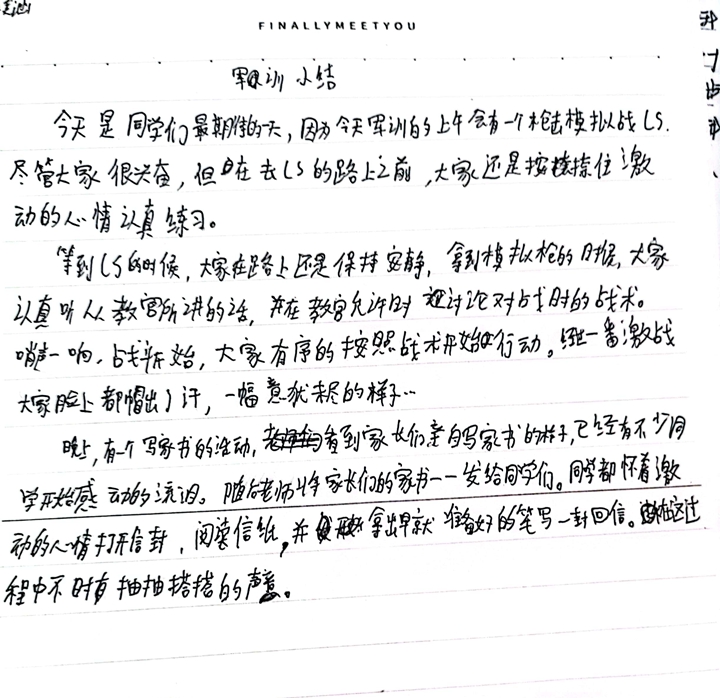 FINALLYMEETYOU
军训 小结
今天是同学们最期待的一天，因为今天军训的上午会有一个枪击模拟战LS.
尽管大家很兴奋，但在去LS的路上之前，大家还是按捺住激
动的心情认真练习。
等到LS的时候，大家在路上还是保持安静，拿到模拟枪的时候，大家
认真听从教官所讲的话，并在教官允许时讨论对战时的战术。
哨声一响，战斗开始，大家有序的按照战术开始行动。经一番激战
大家脸上都冒出了汗，一幅意犹未尽的样子…
晚上，有一个写家书的活动，看到家长们亲自写家书的样子，已经有不少同
学开始感动的流泪。随后老师将家长们的家书一一发给同学们。同学都怀着激
动的心情打开信封，阅读信纸，并拿出早就准备好的笔写一封回信。在这过
程中不时有抽抽搭搭的声音。